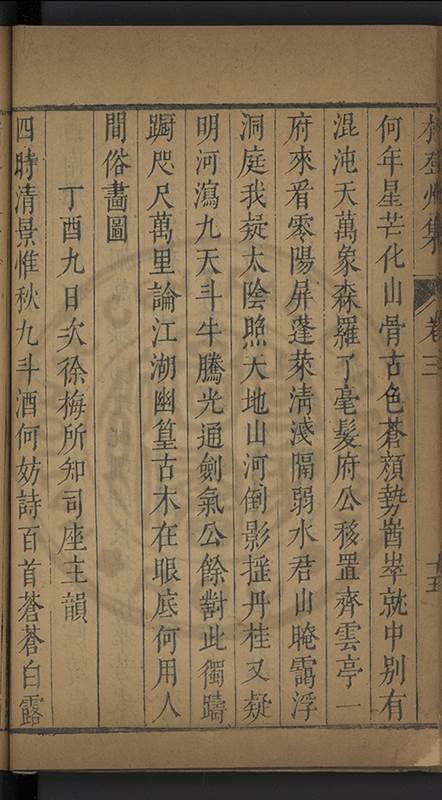 何年星芒化山骨古色蒼顏勢崷崒就中別有
混沌天萬象森羅了毫髮府公移置齊雲亭一
府來看零陽屏蓬萊清淺隔弱水君山晻靄浮
洞庭我疑太陰照大地山河倒影搖丹桂又疑
明河瀉九天斗牛騰光通劍氣公餘對此獨躊
躕咫尺萬里論江湖幽篁古木在眼底何用人
間俗畫圖
丁酉九日次徐梅所知司座主韻
四時清景惟秋九斗酒何妨詩百首蒼蒼白露